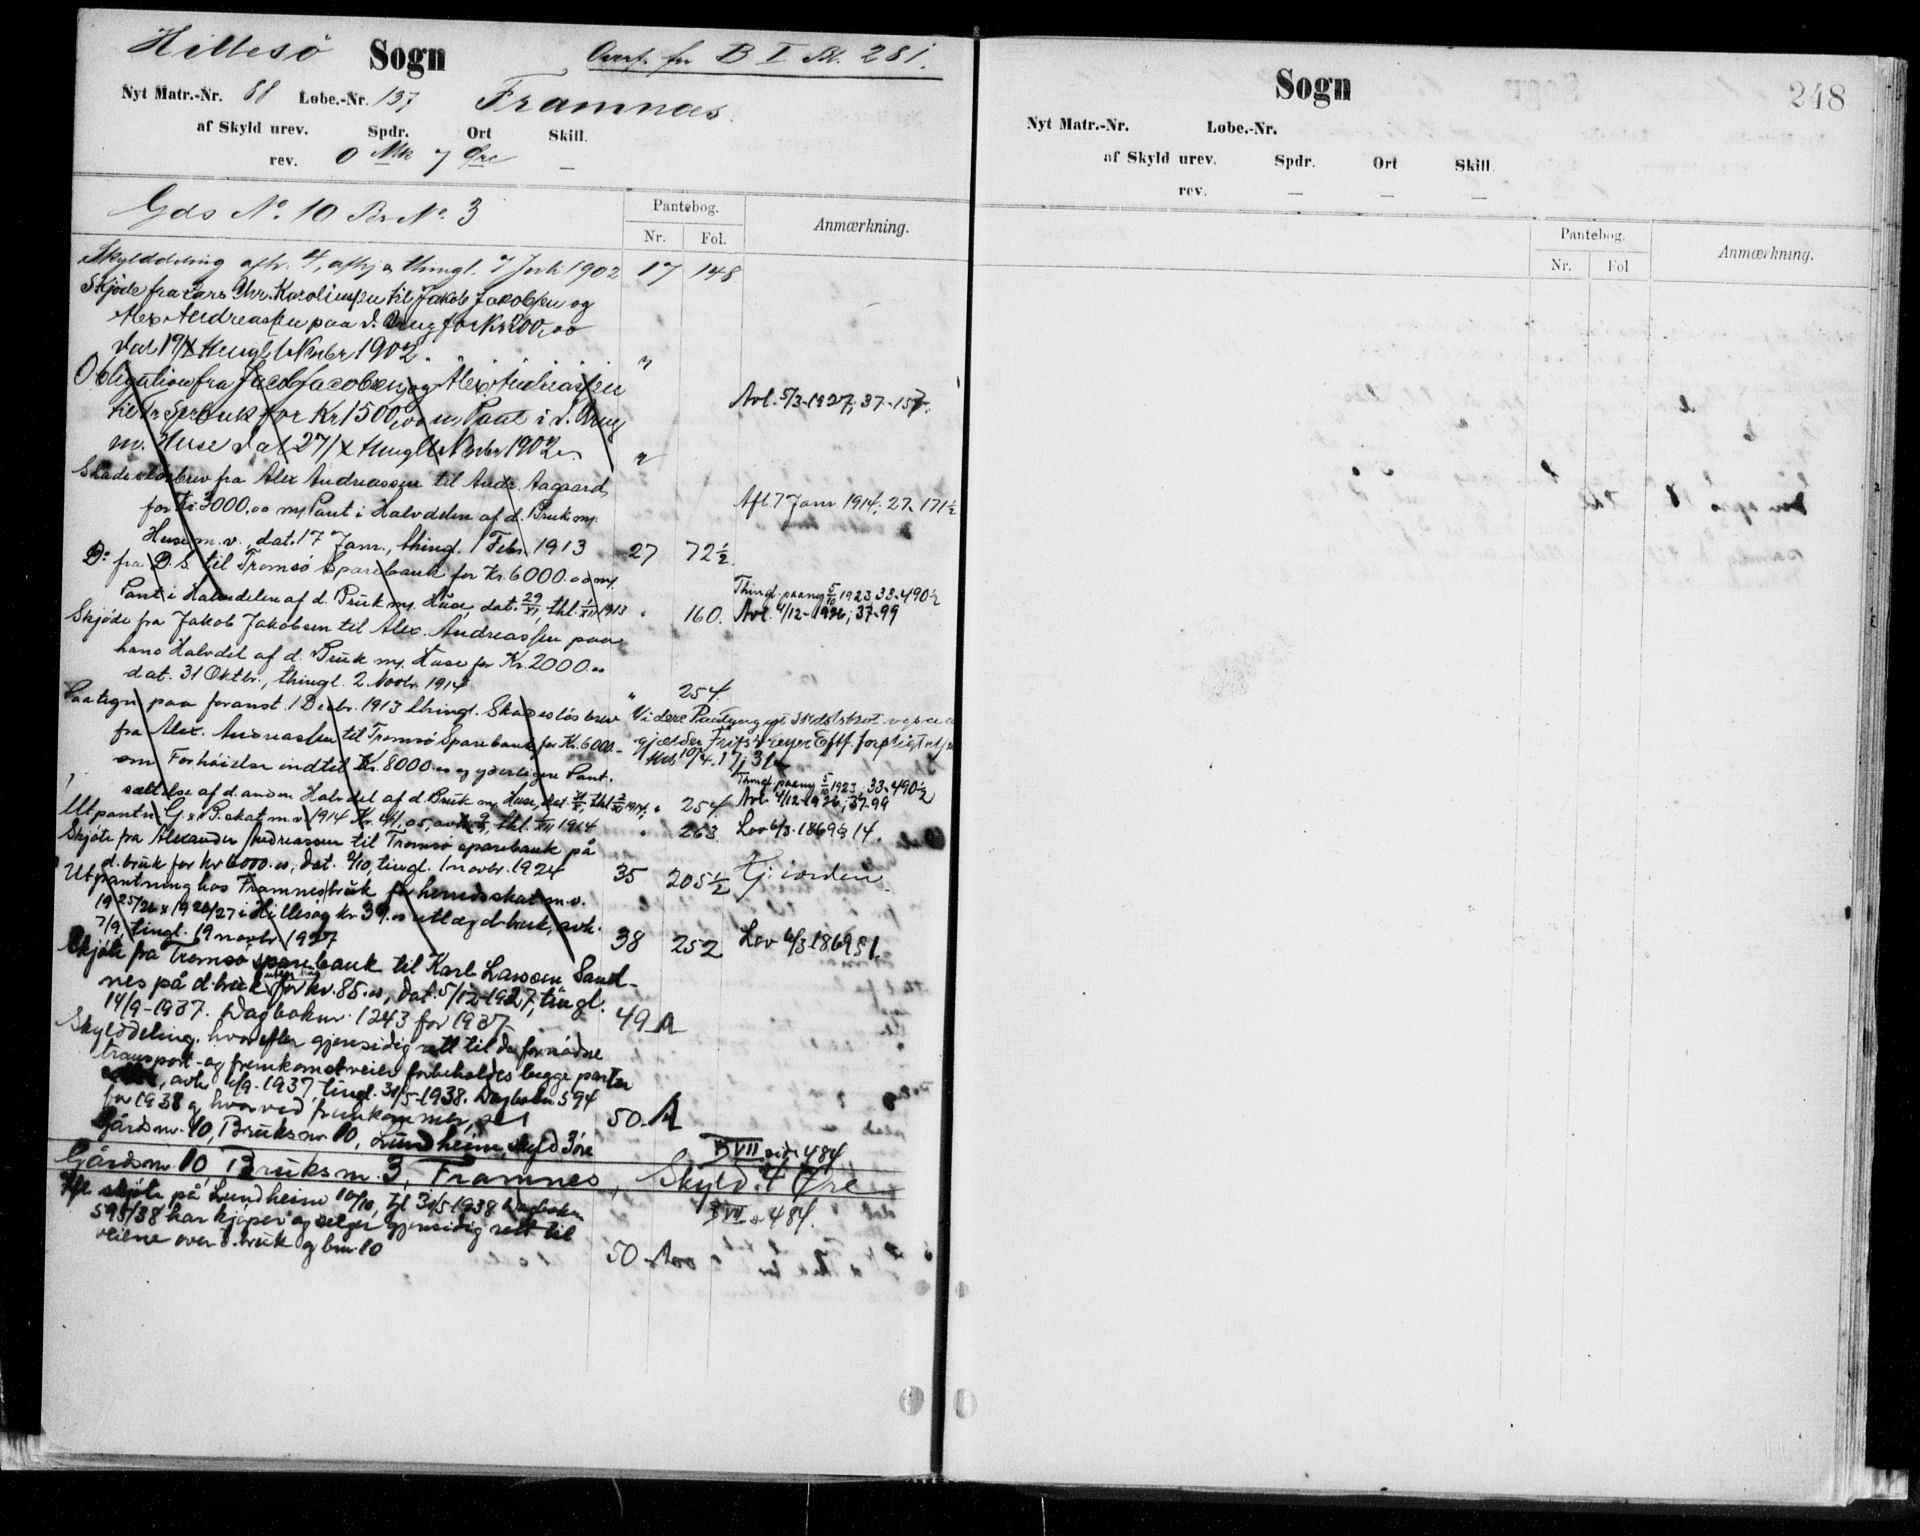 Hillesö Sogn Overf. fra B I Bl. 281.
Nyt Matr.-Nr. 68 Løbe.-Nr. 137 Framnæs.
af Skyld urev. Spdr. Ort Skill.
rev. 0 Mk 7 Øre —
Gds No. 10 Br No. 3
Pantebog. Anmærkning.
Nr. Fol.
Skylddeling afh. 4, afhj & thingl. 7 Juli 1902 17 148
Skjöde fra Lars Chr. Karoliussen til Jakob Jakobsen og
Alex Andreassen paa d. Brug for Kr 200,00
dat 19/X thingl. 1 Novbr 1902. "
Obligation fra Jacob Jacobsen og Alex Andreassen
til Tr Sp bank for Kr 1500,00 m. Pant i d. Brug Avl. 5/3-1927; 37-157.
m. Huse dat 27/X thingl 1 Novbr 1902 "
Skadeslösbrev fra Alex Andreassen til Andr. Aagaard
for Kr 3000.00 m/ Pant i Halvdelen af d. Bruk m/ Afl 7 Janr 1914; 27-171½
Huse m.v., dat. 17 Janr., thingl. 1 Febr. 1913 27 72½
Do fra D.S. til Tromsö Sparebank for Kr. 6000.00 m/
Pant i Halvdelen af d. Bruk m/ Huse, dat. 29/XI, thl. 1/XII 1913 " 160. Thingl. paany 5/10 1923 33-490½
Avl. 4/12-1926; 37-99
Skjöde fra Jakob Jakobsen til Alex. Andreassen paa
hans Halvdel af d. Bruk m/ Huse for Kr. 2000.00
dat. 31 Oktbr., thingl. 2 Novbr 1914 " 254.
Paategn paa foranst. 1 Decbr. 1913 thingl. Skadeslös brev
fra Alex. Andreassen til Tromsö Sparebank for Kr. 6000.-
om Forhöielse indtil Kr. 8000.00 og yderligere Pant-
sættelse af d. anden Halvdel af d. Bruk m/ Huse, 1914, " 254. Thingl. paany 5/10 1923; 33-490½
Avl. 4/12-1926; 37-99
Utpantn G. & P. skat m.v. 1914 Kr. 41,05, thl. 1/XII 1914 " 263. Lov 6/3-1869 § 14.
Skjöte fra Alexander Andreassen til Tromsö sparebank på
d. bruk for kr 6000.00, dat. 9/10, tingl. 1 novbr. 1924 35 205½ Hj. jorden
Utpantning hos Framnes bruk for herredsskat m.v.
1925/26 & 1926/27 i Hillesøy kr 39.00 utlæg d. bruk, avh.
7/9, tingl. 19 novbr 1927 38 252 Lov 6/3 1869 § 1.
Skjöte fra Tromsö sparebank til Karl Larssen Sand-
nes på d. bruk for kr. 85.00, dat. 5/12-1927, tingl.
14/9-1937. Dagboknr. 1243 for 1937 49 A
Skylddeling, hvorefter gjensidig rett til de fornødne
transport- og fremkomstveier forbeholdes begge parter
avh. 1/9-1937, tingl. 31/5-1938. Dagboknr. 594
for 1938 og hvorved fremkommer,
Gårdsnr. 10, Bruksnr 10, Lundheim, skyld 3 øre 50 A B VII side 484
Gårdsnr. 10, Bruksnr. 3, Framnes, Skyld 4 Øre
Ifl. skjöte på Lundheim 10/10, tgl 31/5-1938 Dagboknr. B VII s 484.
595/38 har kjöper og selger gjensidig rett til
veiene over d. bruk og bnr 10 50
Sogn 248
Nyt Matr.-Nr. Løbe.-Nr.
af Skyld urev. Spdr. Ort Skill.
rev. — — —
Pantebog. Anmærkning.
Nr. Fol